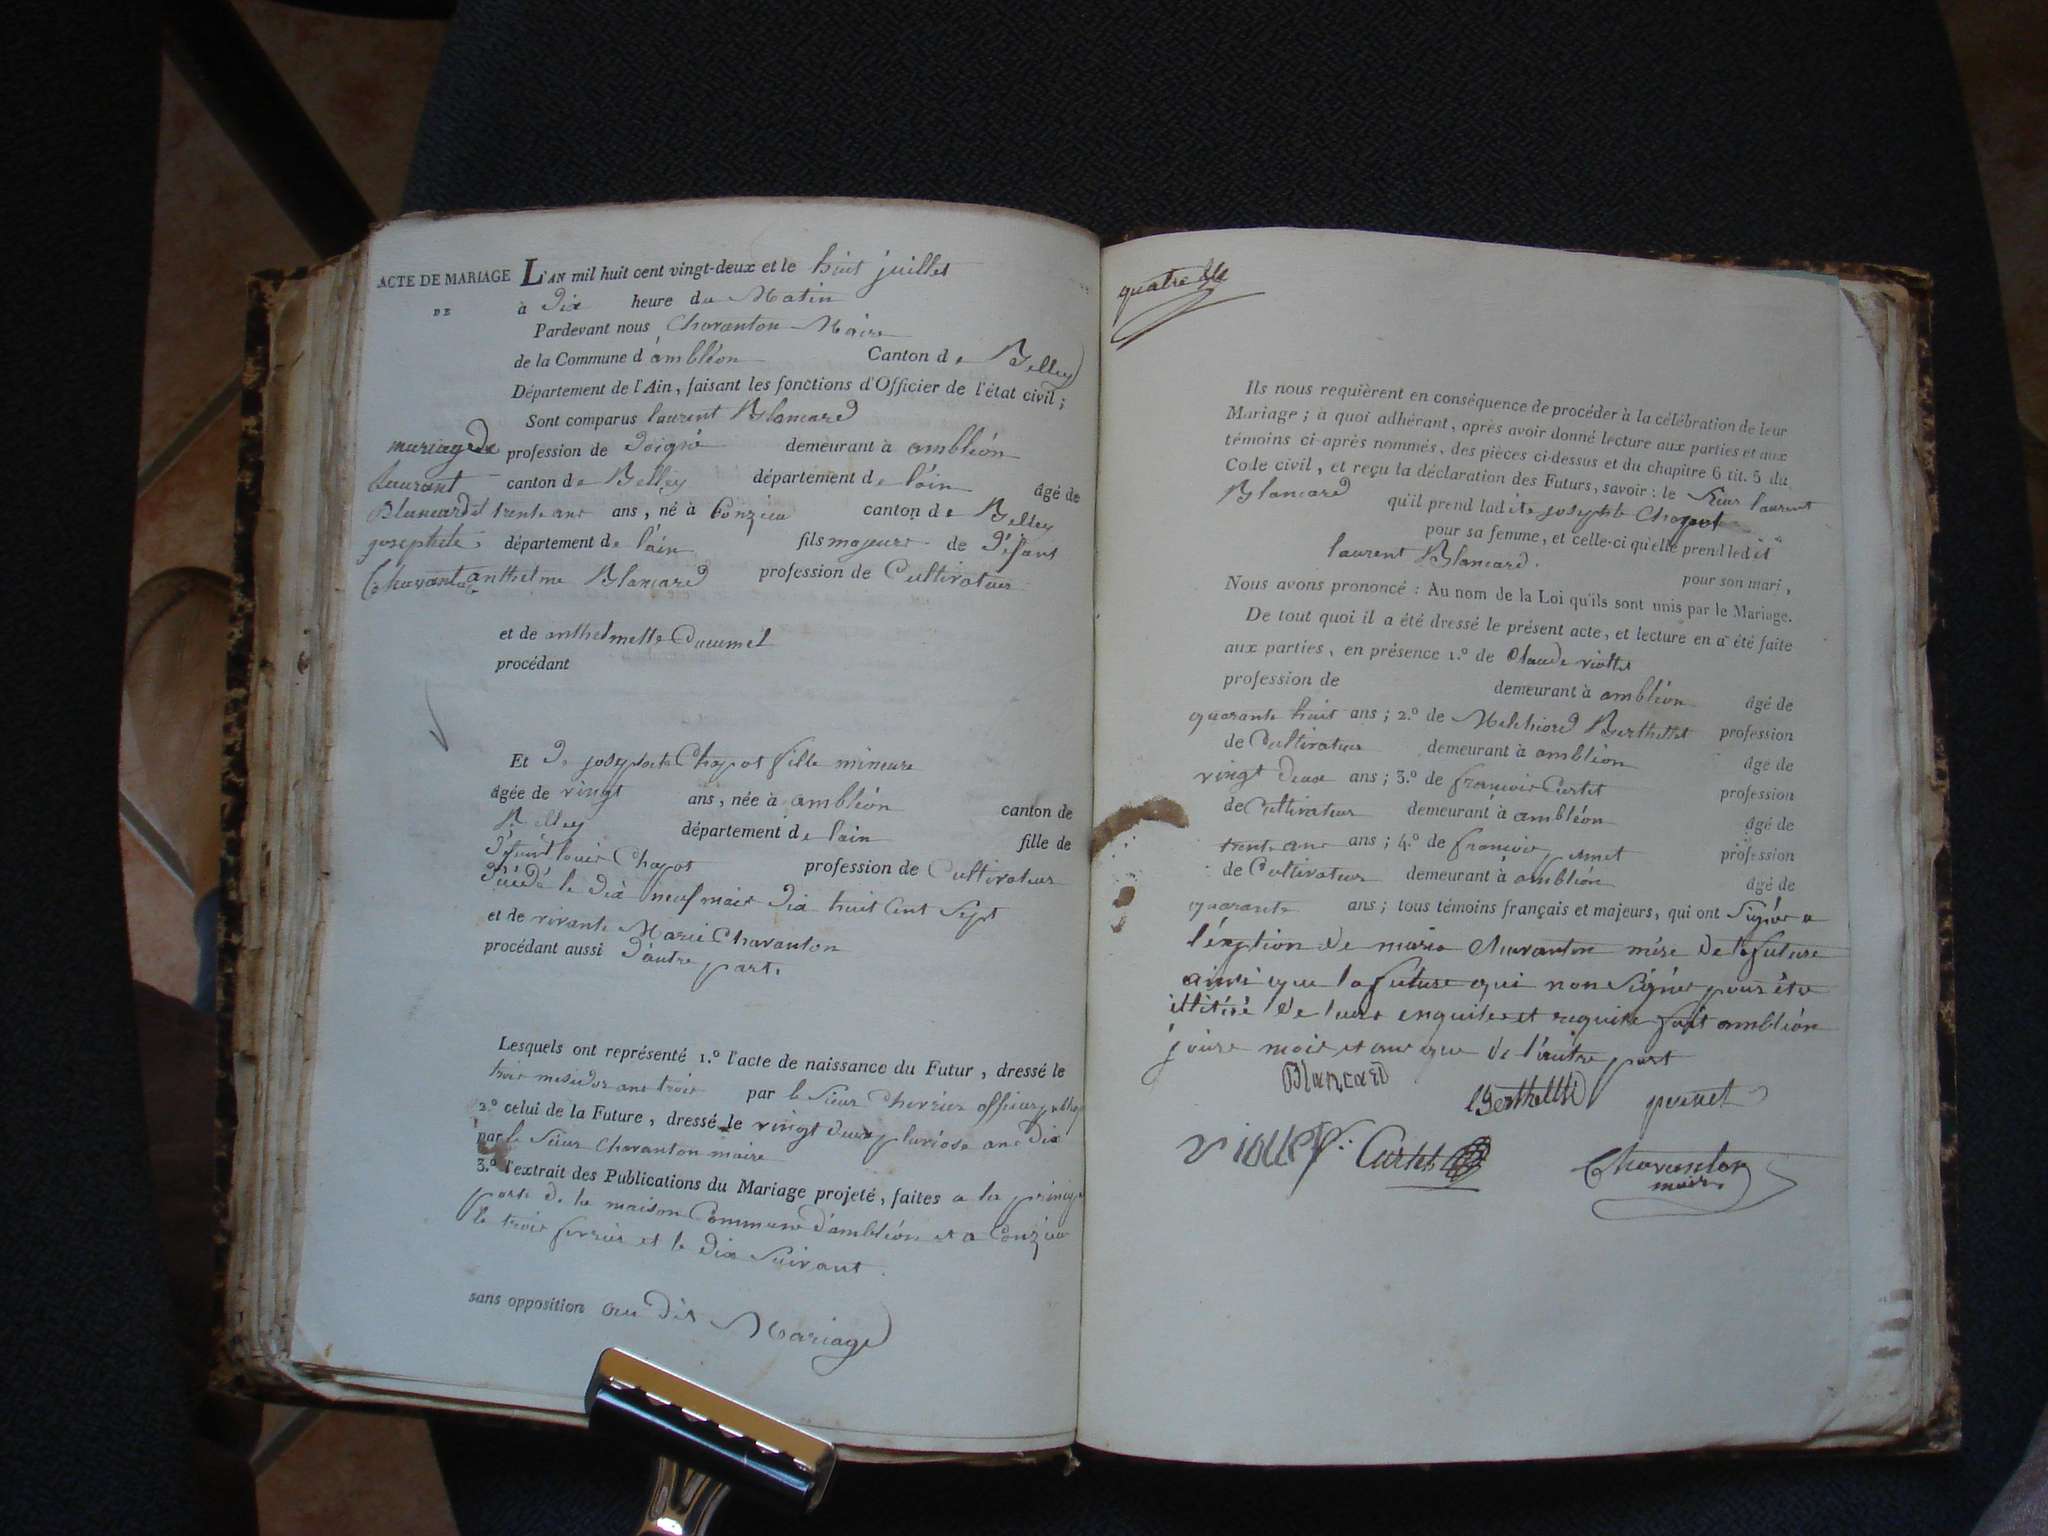 ACTE DE MARIAGE L'AN mil huit cent vingt-deux et le huit juillet
DE à dix heure du Matin
Pardevant nous Chavanton Maire
de la Commune d'ambléon Canton de Belley
Département de l'Ain, faisant les fonctions d'Officier de l'état civil;
Sont comparus laurent Blancard
profession de demeurant à ambléon
canton de Belley département de lain âgé de
trente ans ans, né à Conzieu canton de Belley
département de l'ain fils majeur de défunt
anthelme Blancard profession de Cultivateur
mariage de
laurent
Blancard et
josephete
et de anthelmette
procédant
Et de josephete Chapot fille mineure
âgée de vingt ans, née à ambléon canton de
Belley département de lain fille de
défunt louis Chapot profession de Cultivateur
décédé le dix neuf mais dix huit cent sept
et de vivante Marie Chavanton
procédant aussi d'autre part.
Lesquels ont représenté 1.º l'acte de naissance du Futur, dressé le
trois mesidor ans trois par le sieur Cherrier officier
2.º celui de la Future, dressé le vingt deux pluviose ans dix
par le sieur Chavanton maire
3.º l'extrait des Publications du Mariage projeté, faites a la
porte de la maison Commune d'ambléon et a Conzieu
le trois fevrier et le dix suivant
sans opposition au dit Mariage
quatre
Ils nous requièrent en conséquence de procéder à la célébration de leur
Mariage; à quoi adhérant, après avoir donné lecture aux parties et aux
témoins ci-après nommés, des pièces ci-dessus et du chapitre 6 tit. 5 du
Code civil, et reçu la déclaration des Futurs, savoir: le sieur laurent
Blancard qu'il prend ladite josephte Chapot
pour sa femme, et celle-ci qu'elle prend ledit
laurent Blancard. pour son mari,
Nous avons prononcé: Au nom de la Loi qu'ils sont unis par le Mariage.
De tout quoi il a été dressé le présent acte, et lecture en a été faite
aux parties, en présence 1.º de Claude viollet
profession de demeurant à ambléon âgé de
quarante huit ans; 2.º de Melchiord Berthellet profession
de Cultivateur demeurant à ambléon âgé de
vingt deux ans; 3.º de françois Curtet profession
de Cultivateur demeurant à ambléon âgé de
trente ans ans; 4.º de françois profession
de Cultivateur demeurant à ambléon âgé de
quarante ans; tous témoins français et majeurs, qui ont signés a
l'éxption de marie Chavanton mère de la future
ainsi que la future qui non signés pour être
illitiré de leurs enquises et requise fait ambléon
jours mois et ans que de l'autre part
Blancard
Berthellet
viollet
Curtet
Chavanton
maire